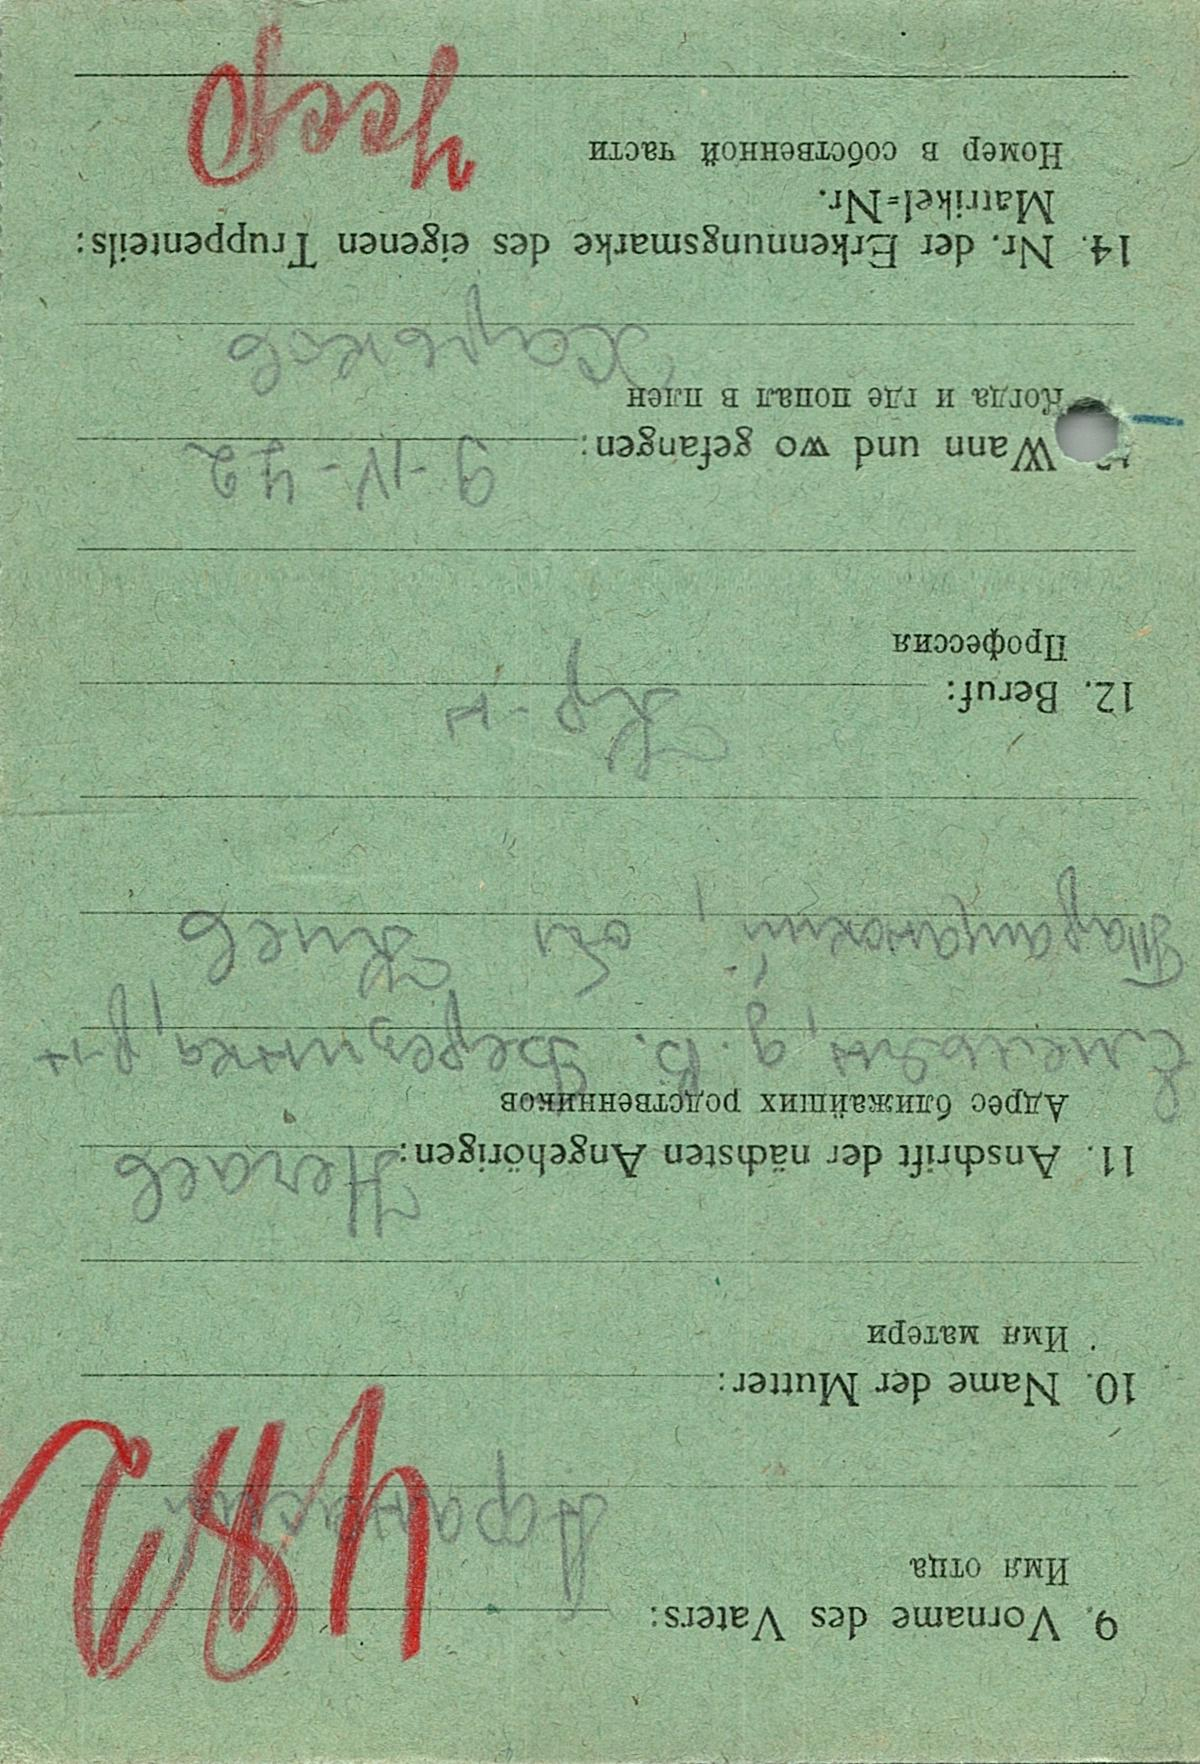 9. Vorname des Vaters:
Имя отца
Афанасий
10. Name der Mutter:
Имя матери
11. Anschrift der nächsten Angehörigen:
Адрес ближайших родственников
Емельян, д. В. Березянка, р-н
Таращанский, обл Киев
12. Beruf:
Кр-н
Профессия
Wann und wo gefangen: 9-IV-42
Когда и где попал в плен
Харьков
14. Nr. der Erkennungsmarke des eigenen Truppenteils:
Matrikel=Nr.
Номер в собственной части